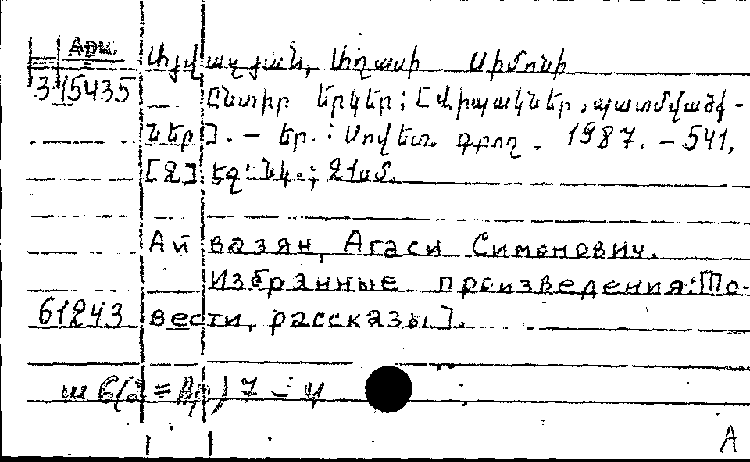 Арм.
Այվազյան, Աղասի Սիմոնի
345435
Ընտիր երկեր; [Վիպակներ, պատմվածք-
ներ]. – Եր.: Սովետ. գրող. 1987. – 541,
[2] էջ: նկ.; 21սմ.
Айвазян, Агаси Симонович.
Избранные произведения: [По-
61243 вести, рассказы].
6(2=Ар)7-4
А